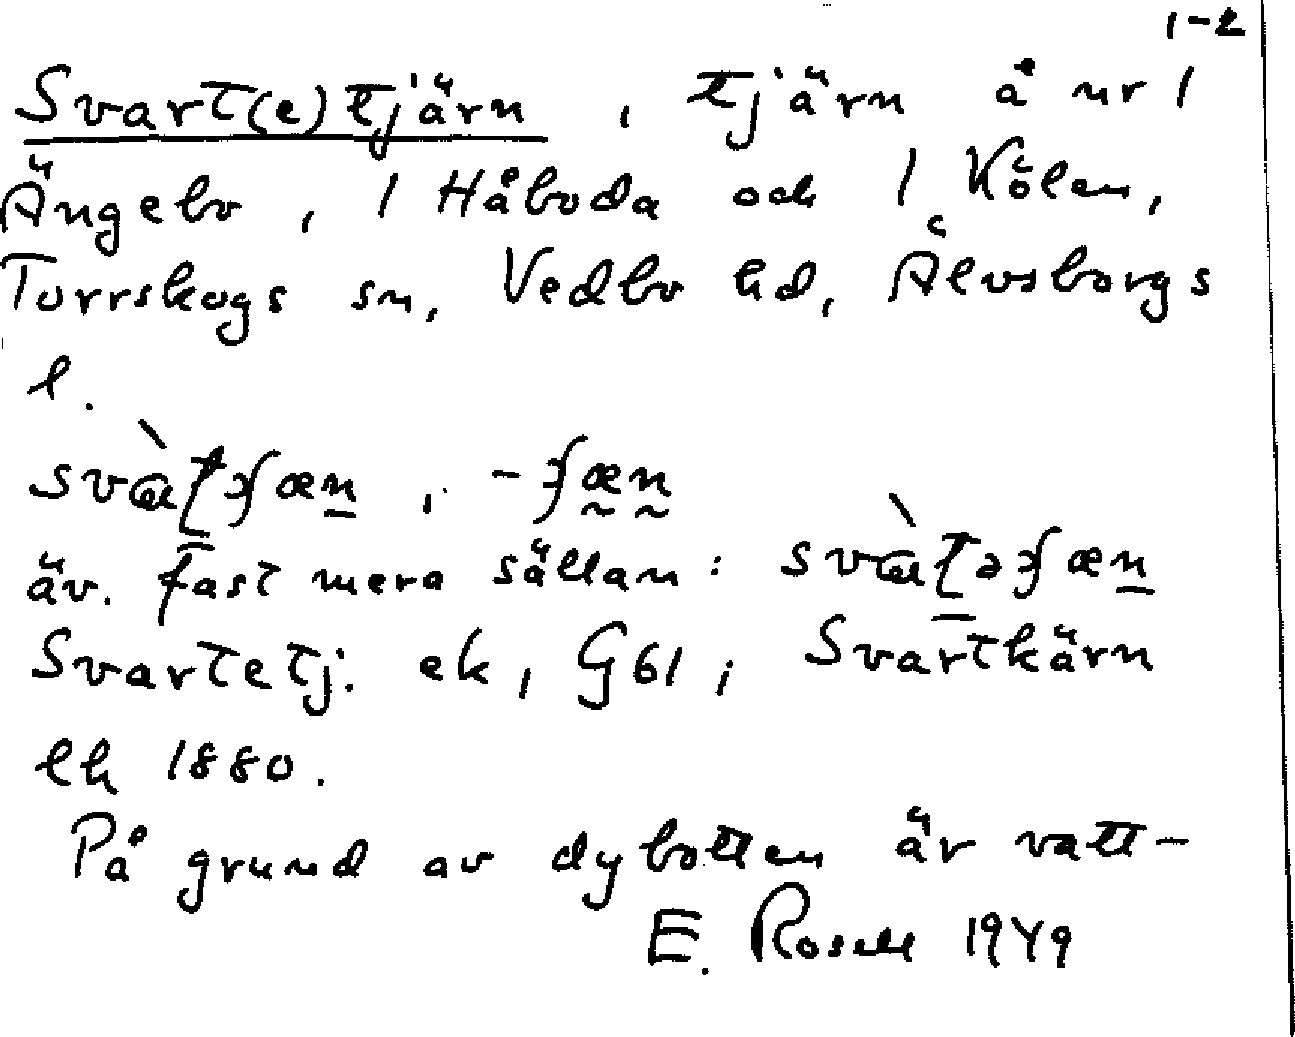 1-2
Svart(e)tjärn, tjärn å nr 1
Ängebo, 1 Håboda och 1 Kölen,
Torrskogs sn, Vedbo hd, Älvsborgs
l.
äv. fast mera sällan:
Svartetj. ek, G61; Svartkärn
ek 1880.
På grund av dybotten är vatt-
E. Rosell 1949